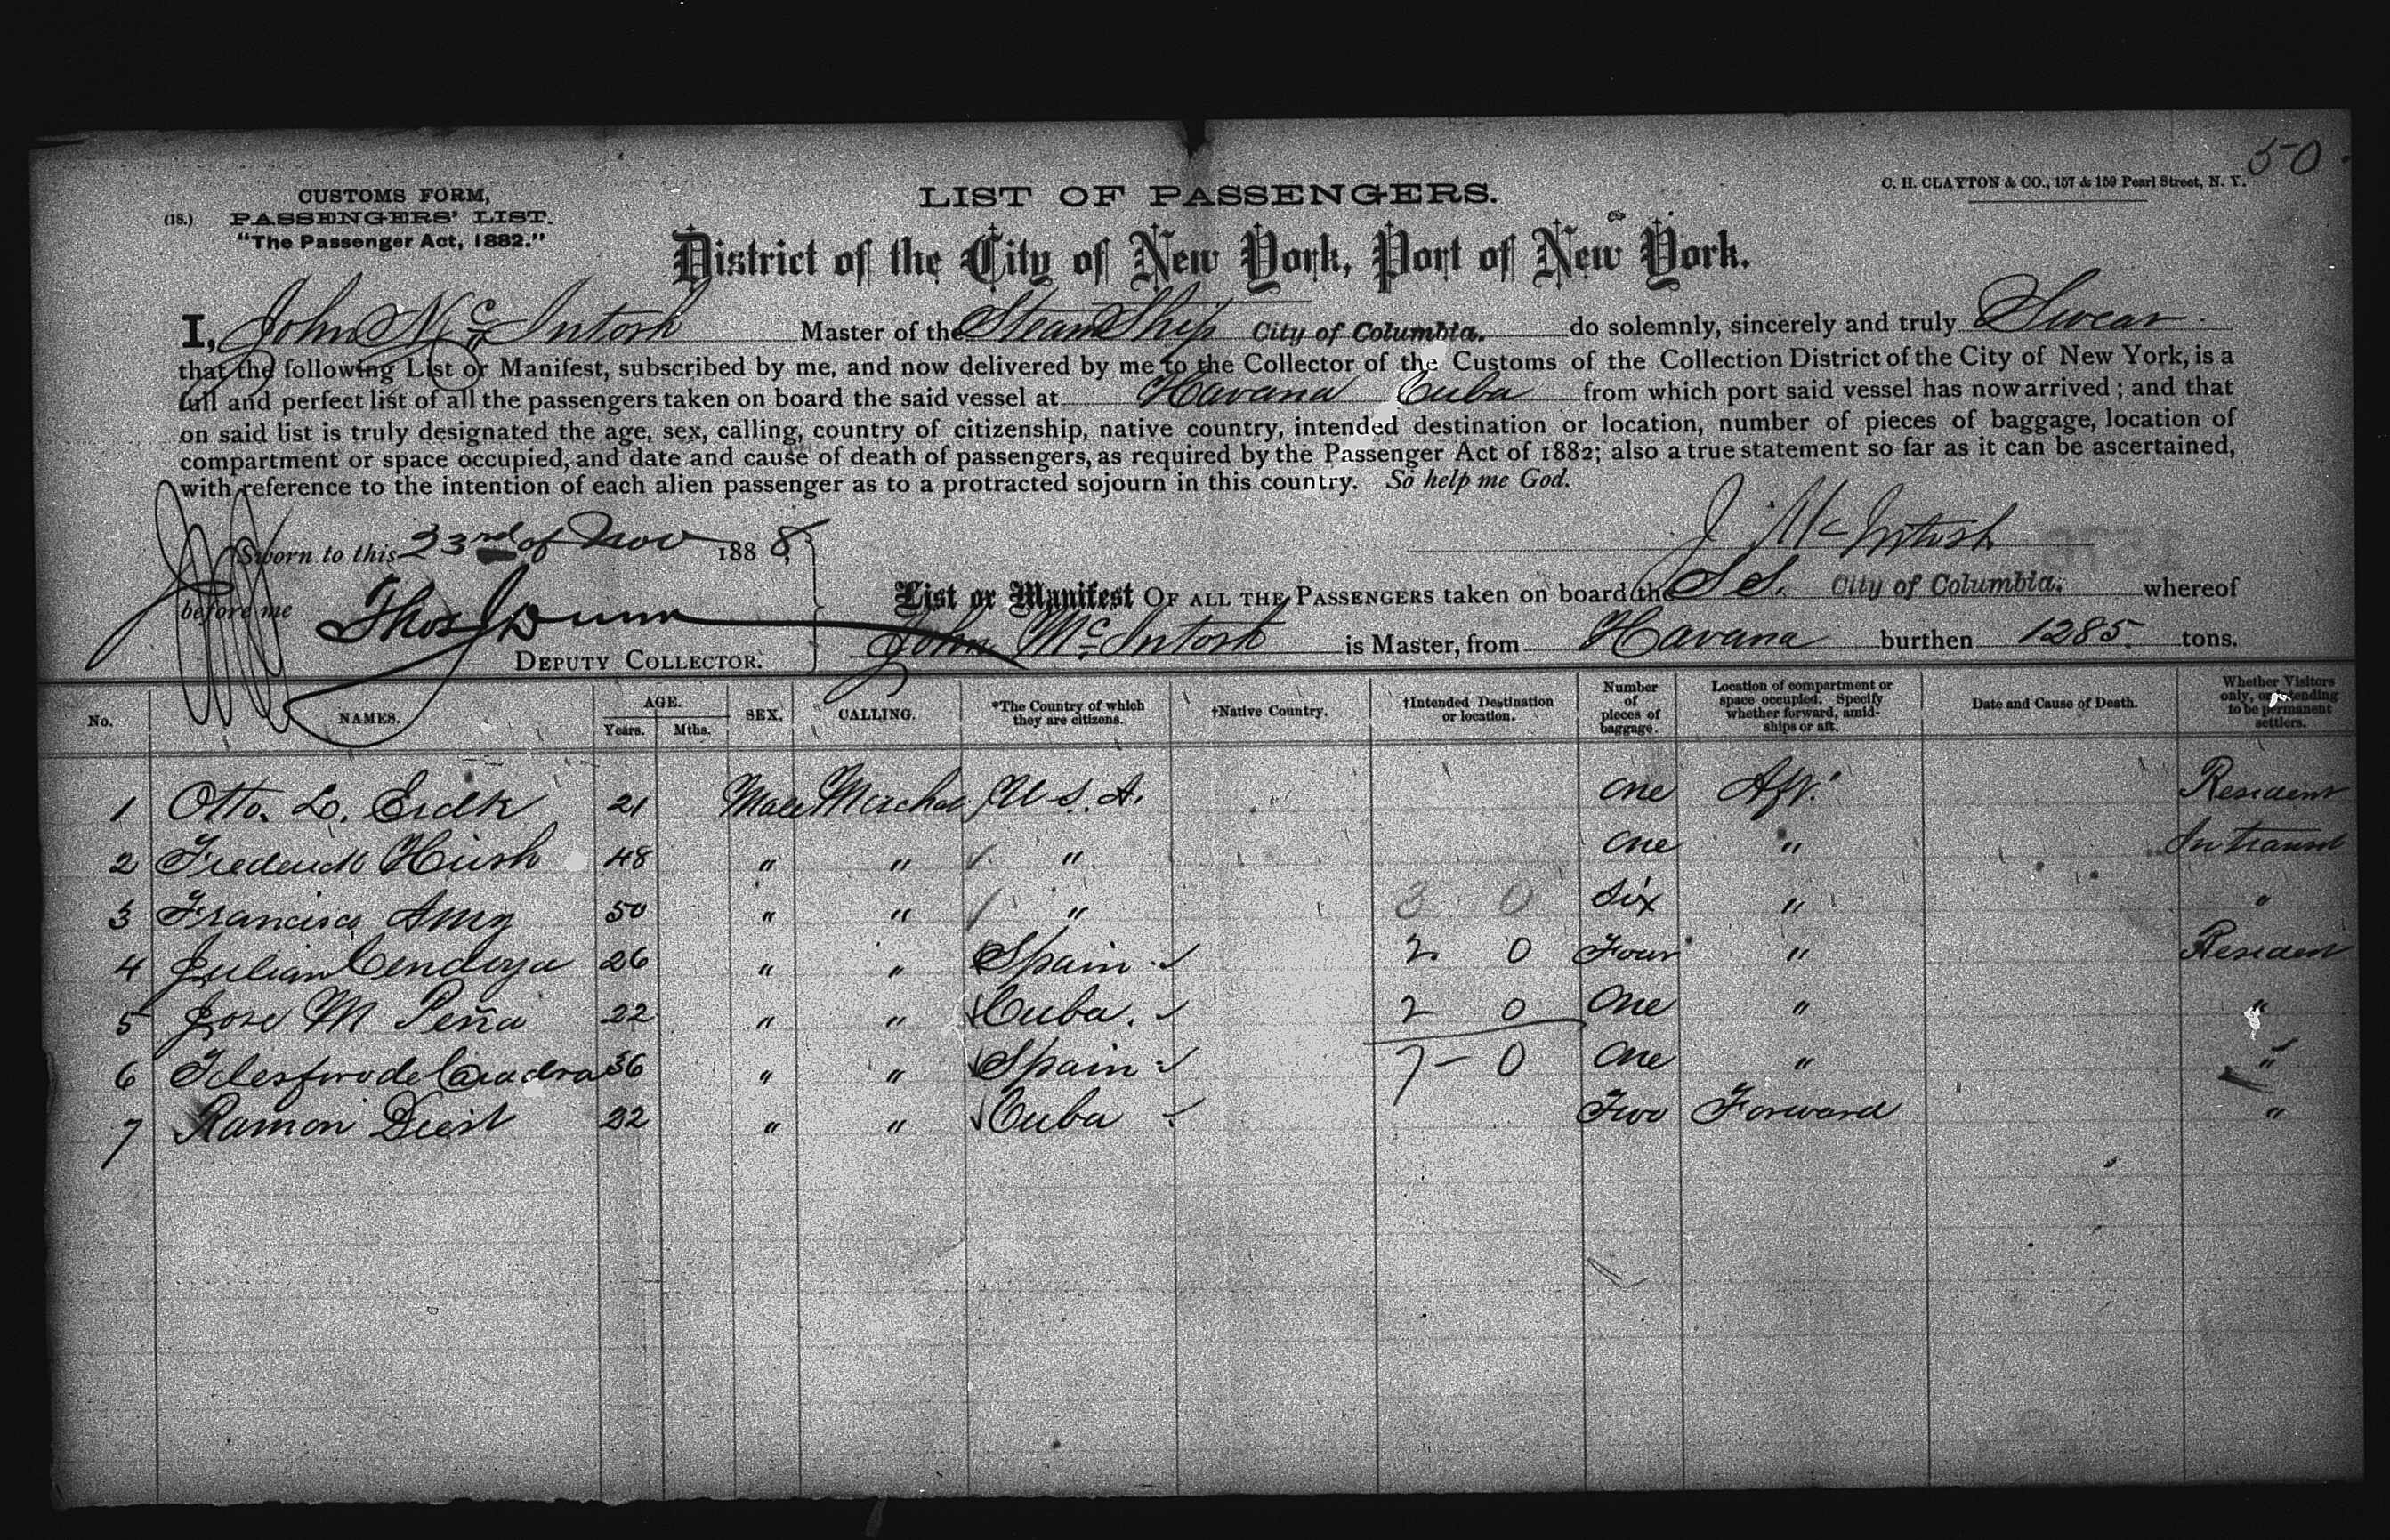 50
CUSTOMS FORM,
(18.) PASSENGERS' LIST.
"The Passenger Act, 1882."
LIST OF PASSENGERS.
C. H. CLAYTON & CO., 157 & 159 Pearl Street, N. Y.
District of the City of New York, Port of New York.
I, John Mc Intosh Master of the Steam Ship City of Columbia. do solemnly, sincerely and truly Swear
that the following List or Manifest, subscribed by me, and now delivered by me to the Collector of the Customs of the Collection District of the City of New York, is a
full and perfect list of all the passengers taken on board the said vessel at Havana Cuba from which port said vessel has now arrived; and that
on said list is truly designated the age, sex, calling, country of citizenship, native country, intended destination or location, number of pieces of baggage, location of
compartment or space occupied, and date and cause of death of passengers, as required by the Passenger Act of 1882; also a true statement so far as it can be ascertained,
with reference to the intention of each alien passenger as to a protracted sojourn in this country. So help me God.
Sworn to this 23rd of Nov 1888
J McIntosh
before me Thos J Dunn
DEPUTY COLLECTOR.
List or Manifest OF ALL THE PASSENGERS taken on board the S S. City of Columbia. whereof
John Mc Intosh is Master, from Havana burthen 1285 tons.
No. NAMES. AGE. Years. Mths. SEX. CALLING. *The Country of which they are citizens. †Native Country. †Intended Destination or location. Number of pieces of baggage. Location of compartment or space occupied. Specify whether forward, amidships or aft. Date and Cause of Death. Whether Visitors only, or intending to be permanent settlers.
1 Otto. L. 21 Male U. S. A. One Aft. Resident
2 Frederick Hirsh 48 " " " One " In transit
3 Francisco Amy 50 " " " 3 0 Six " "
4 Julian Cendoya 26 " " Spain 2 0 Four " Resident
5 Jose M Peña 22 " " Cuba. 2 0 One " "
6 Telesforo de Cuadra 36 " " Spain 7-0 One " "
7 Ramon 22 " " Cuba Two Forward "